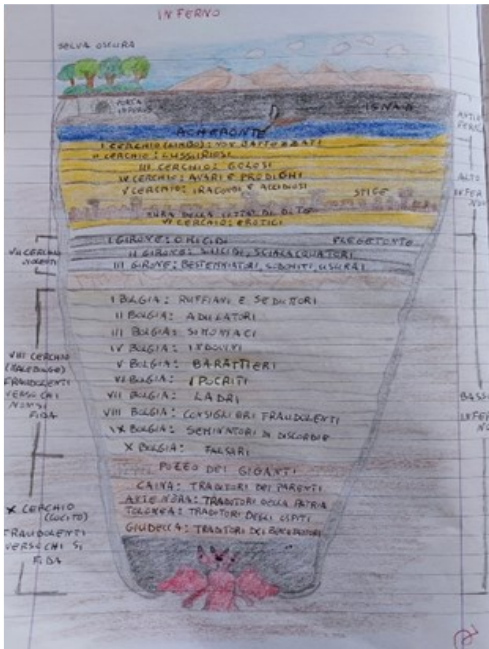 INFERNO
SELVA OSCURA
PORTA
IGNAVI
ACHERONTE
I CERCHIO (LIMBO): NON BATTEZZATI
II CERCHIO: LUSSURIOSI
III CERCHIO: GOLOSI
IV CERCHIO: AVARI E PRODIGHI
V CERCHIO: IRACONDI E ACCIDIOSI
STIGE
ALTO
MURA DELLA CITTÀ DI DITE
VI CERCHIO: EROTICI
VII CERCHIO
VIOLENTI
I GIRONE: OMICIDI
FLEGETONTE
II GIRONE: SUICIDI, SCIALACQUATORI
III GIRONE: BESTEMMIATORI, SODOMITI, USURAI
I BOLGIA: RUFFIANI E SEDUTTORI
II BOLGIA: ADULATORI
III BOLGIA: SIMONIACI
IV BOLGIA: INDOVINI
V BOLGIA: BARATTIERI
VI BOLGIA: IPOCRITI
VII BOLGIA: LADRI
VIII BOLGIA: CONSIGLIERI FRAUDOLENTI
IX BOLGIA: SEMINATORI DI DISCORDIE
X BOLGIA: FALSARI
VIII CERCHIO
(MALEBOLGE)
FRAUDOLENTI
VERSO CHI
NON SI
FIDA
BASSO
POZZO DEI GIGANTI
CAINA: TRADITORI DEI PARENTI
ANTENORA: TRADITORI DELLA PATRIA
TOLOMEA: TRADITORI DEGLI OSPITI
GIUDECCA: TRADITORI DEI BENEFATTORI
X CERCHIO
(COCITO)
FRAUDOLENTI
VERSO CHI SI
FIDA